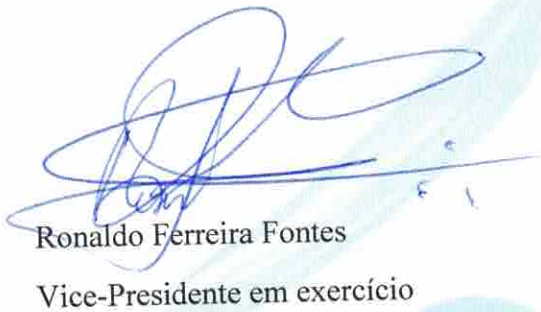 Ronaldo Ferreira Fontes
Vice-Presidente em exercício